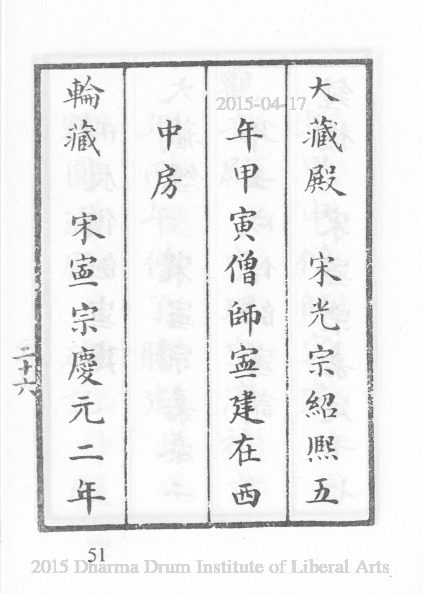 大藏殿 宋光宗紹熙五
年甲寅僧師寍建在西
中房
輪藏 宋寍宗慶元二年
二十六
51
2015-04-17
2015 Dharma Drum Institute of Liberal Arts